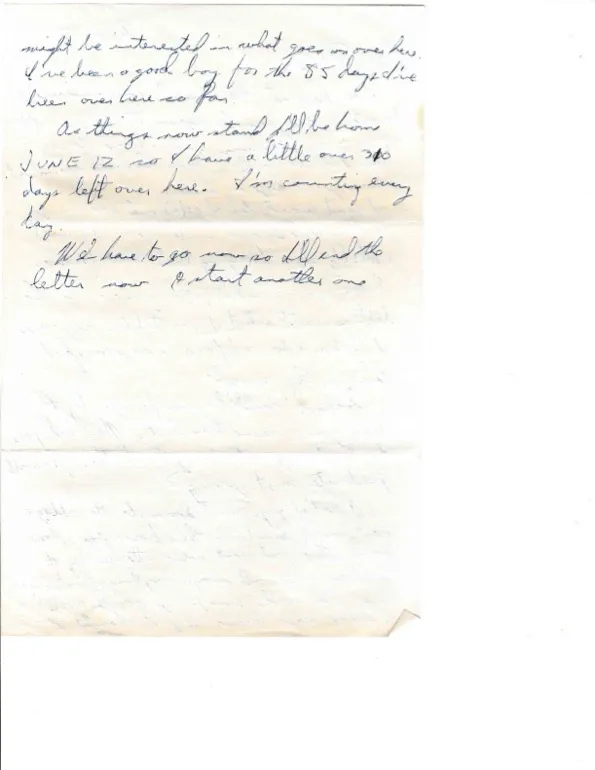 might be interested in what goes on over here.
I've been a good boy for the 85 days I've
been over here so far
As things now stand I'll be home
JUNE 12 so I have a little over 310
days left over here. I'm counting every
day.
We have to go now so I'll end the
letter now & start another one